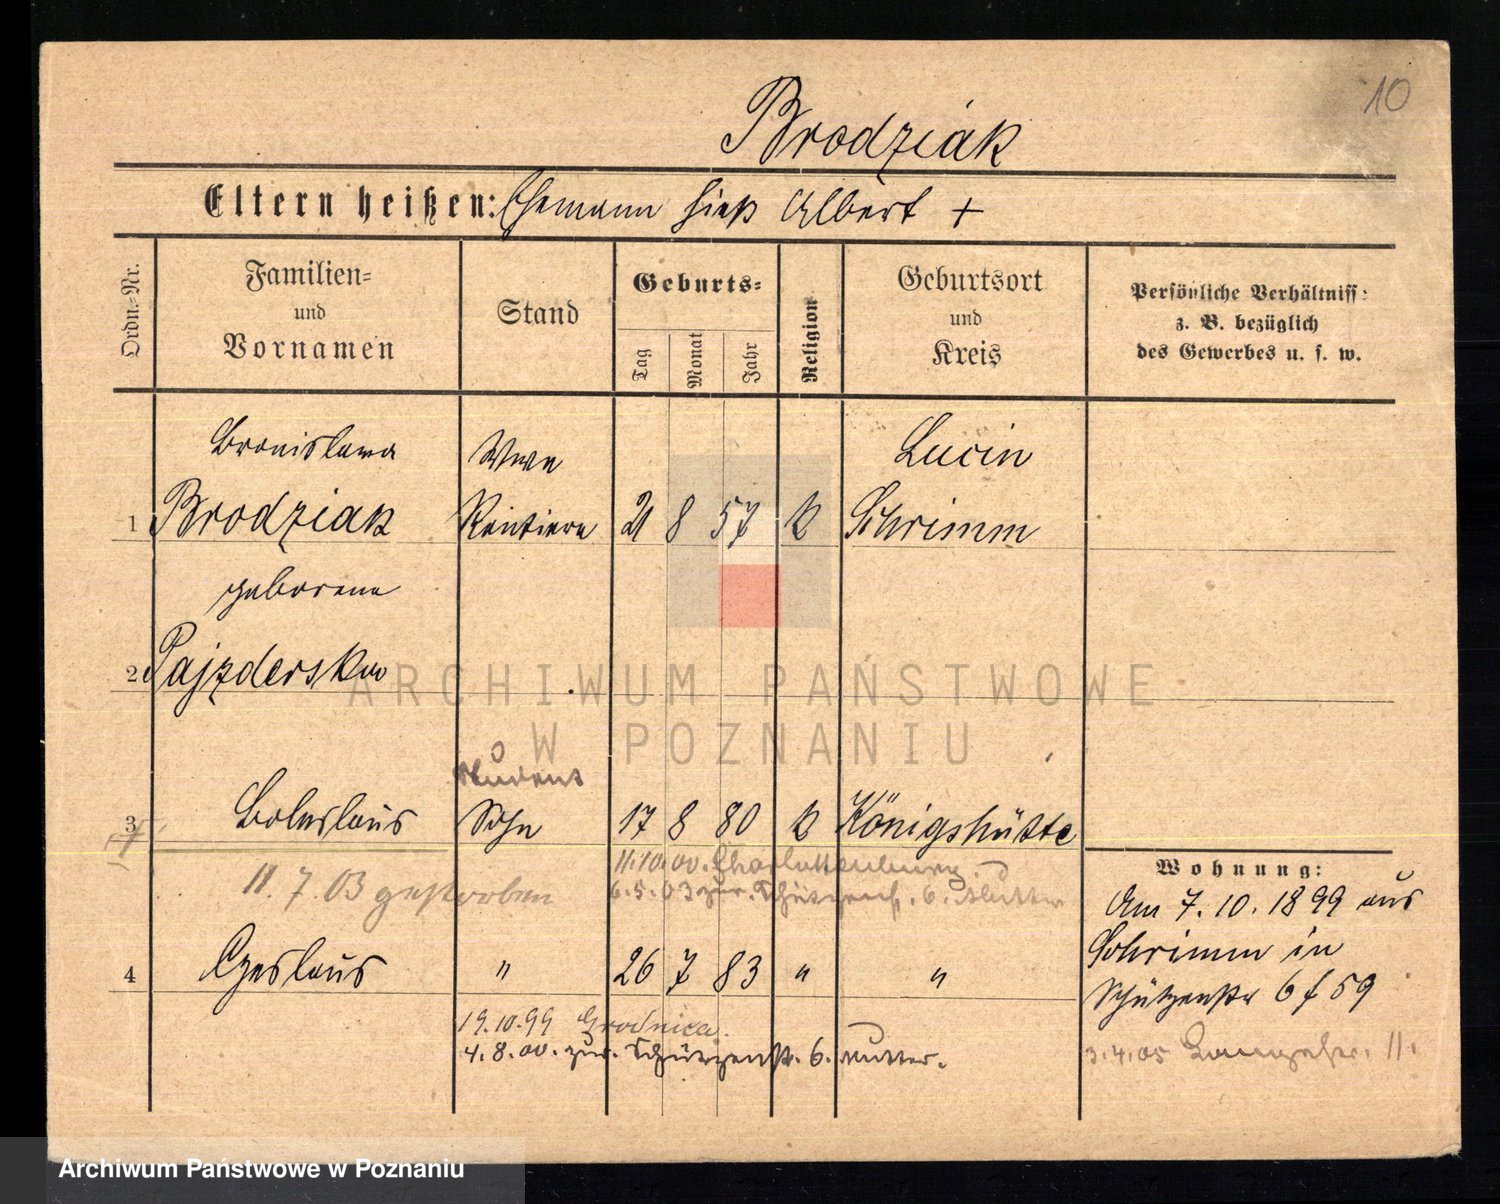 10
Brodziak
Eltern heißen: Ehemann hieß Albert +
Ordn.-Nr.
Familien-
und
Vornamen
Stand
Geburts-
Tag
Monat
Jahr
Religion
Geburtsort
und
Kreis
Persönliche Verhältniss:
z. B. bezüglich
des Gewerbes u. s. w.
Bronislawa Wwe Lucin
1 Brodziak Rentiere 21 8 57 k Schrimm
geborene
2 Pajzderska
Student
3 Boleslaus Sohn 17 8 80 k Königshütte
11.10.00. Charlottenburg
11.7.03 gestorben 6.5.03 zur. Schützenstr. 6. Mutter
4 Czeslaus " 26 7 83 " "
19.10.99 Grodnica.
4.8.00. zur. Schützenstr. 6. Mutter.
Wohnung:
Am 7.10.1899 aus
Schrimm in
Schützenstr 6 f 59
3.4.05 11.
ARCHIWUM PAŃSTWOWE
W POZNANIU
Archiwum Państwowe w Poznaniu